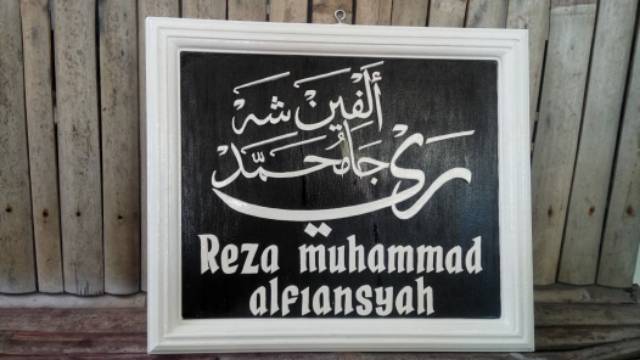 ألفين شه
ري جا محمد
Reza muhammad
alfiansyah